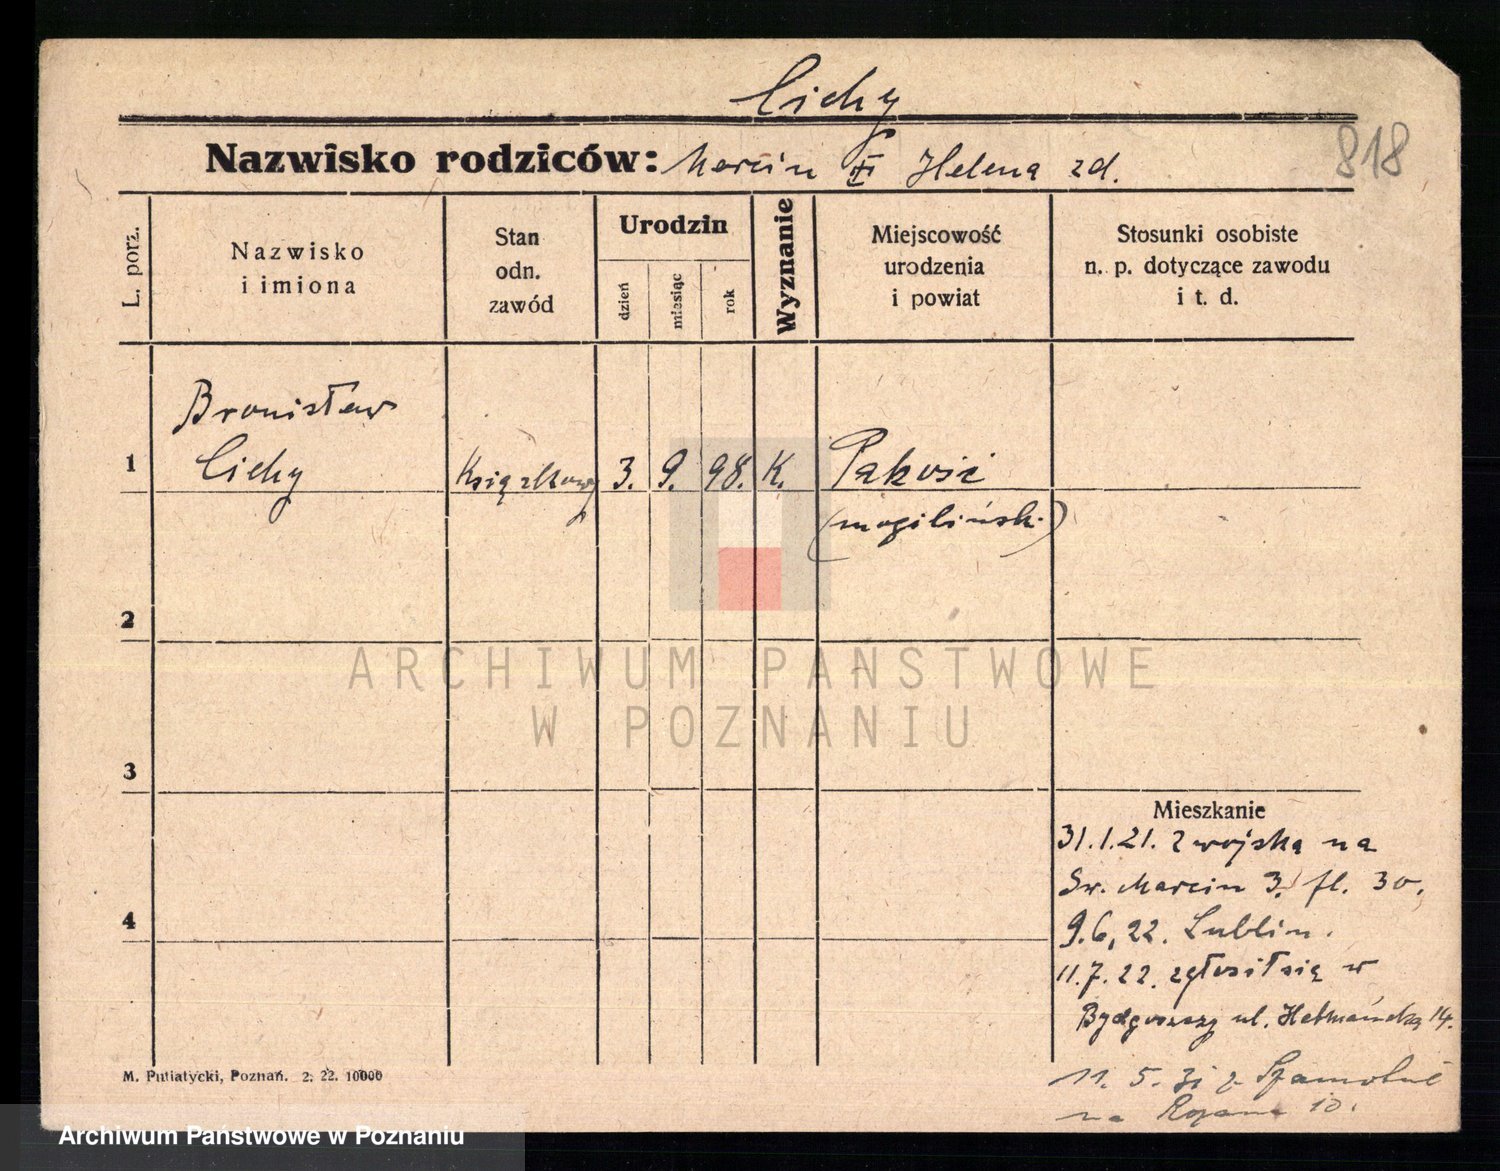 Cichy
818
Nazwisko rodziców: Marcin Helena zd.
L. porz.
Nazwisko
i imiona
Stan
odn.
zawód
Urodzin
dzień
miesiąc
rok
Wyznanie
Miejscowość
urodzenia
i powiat
Stosunki osobiste
n. p. dotyczące zawodu
i t. d.
Bronisław
1 Cichy Książkowy 3. 9. 98. K. Pakość
(mogilińsk.)
2
ARCHIWUM PAŃSTWOWE
W POZNANIU
3
Mieszkanie
31.1.21. z wojska na
Św. Marcin 3. fl. 30.
4
9.6,22. Lublin.
11.7.22. zgłosił się w
Bydgoszczy ul. Hetmańska 14.
11. 5. 31 z
na 10.
M. Putiatycki, Poznań. 2. 22. 10000
Archiwum Państwowe w Poznaniu